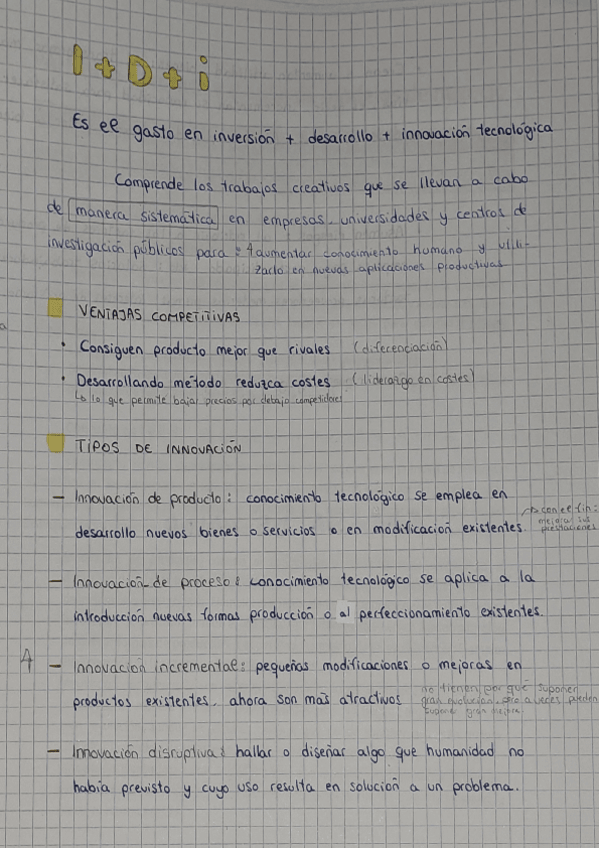 I + D + i
Es el gasto en inversión + desarrollo + innovación tecnológica
Comprende los trabajos creativos que se llevan a cabo
de manera sistemática en empresas, universidades y centros de
investigación públicos para: aumentar conocimiento humano y utili-
zarlo en nuevas aplicaciones productivas
VENTAJAS COMPETITIVAS
• Consiguen producto mejor que rivales (diferenciación)
• Desarrollando método reduzca costes (liderazgo en costes)
↳ lo que permite bajar precios por debajo competidores
TIPOS DE INNOVACIÓN
— Innovación de producto: conocimiento tecnológico se emplea en
desarrollo nuevos bienes o servicios o en modificación existentes.
↱ con el fin:
mejorar sus
prestaciones
— Innovación de proceso: conocimiento tecnológico se aplica a la
introducción nuevas formas producción o al perfeccionamiento existentes.
— Innovación incremental: pequeñas modificaciones o mejoras en
productos existentes, ahora son más atractivos
no tienen por qué suponer
gran evolución, pero a veces pueden
suponer gran mejora.
— Innovación disruptiva: hallar o diseñar algo que humanidad no
había previsto y cuyo uso resulta en solución a un problema.